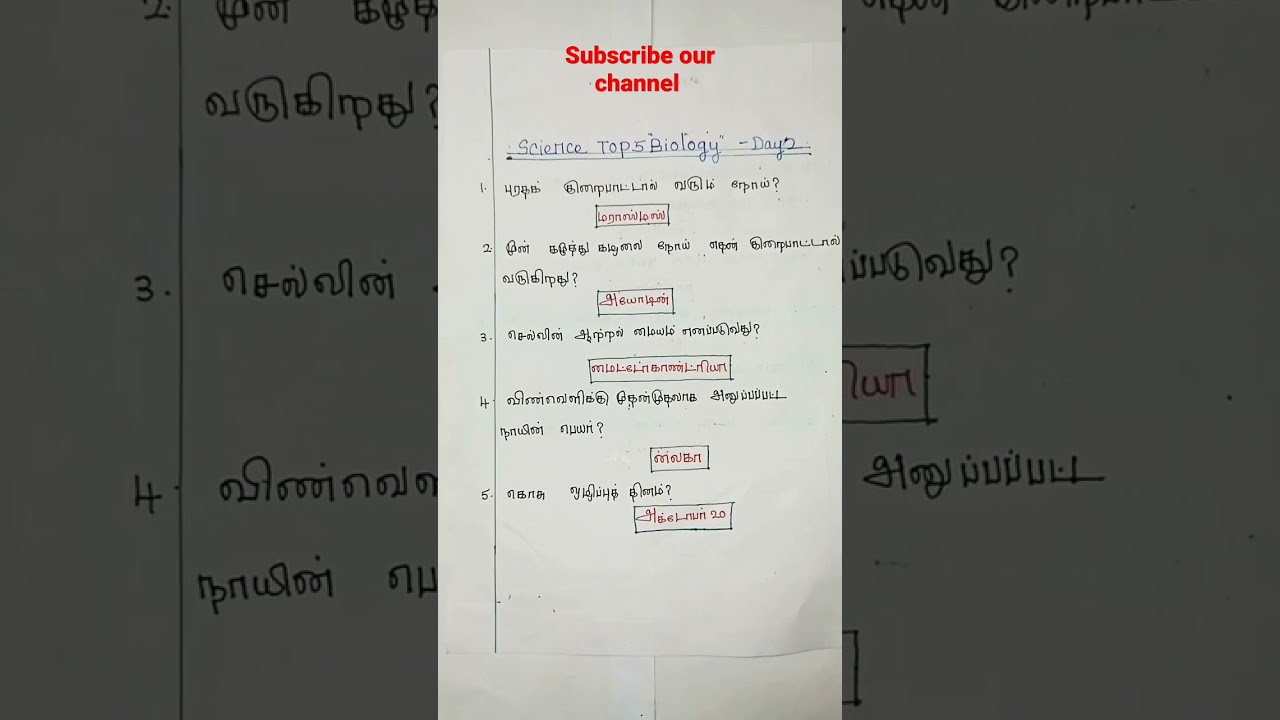 Subscribe our
channel
Science Top5 "Biology" - Day2
1. புரதக் குறைபாட்டால் வரும் நோய்?
மராஸ்மஸ்
2. முன் கழுத்து கழலை நோய் எதன் குறைபாட்டால்
வருகிறது?
அயோடின்
3. செல்லின் ஆற்றல் மையம் எனப்படுவது?
மைட்டோகாண்ட்ரியா
4. விண்வெளிக்கு முதன்முதலாக அனுப்பப்பட்ட
நாயின் பெயர்?
லைகா
5. கொசு ஒழிப்புத் தினம்?
அக்டோபர் 20